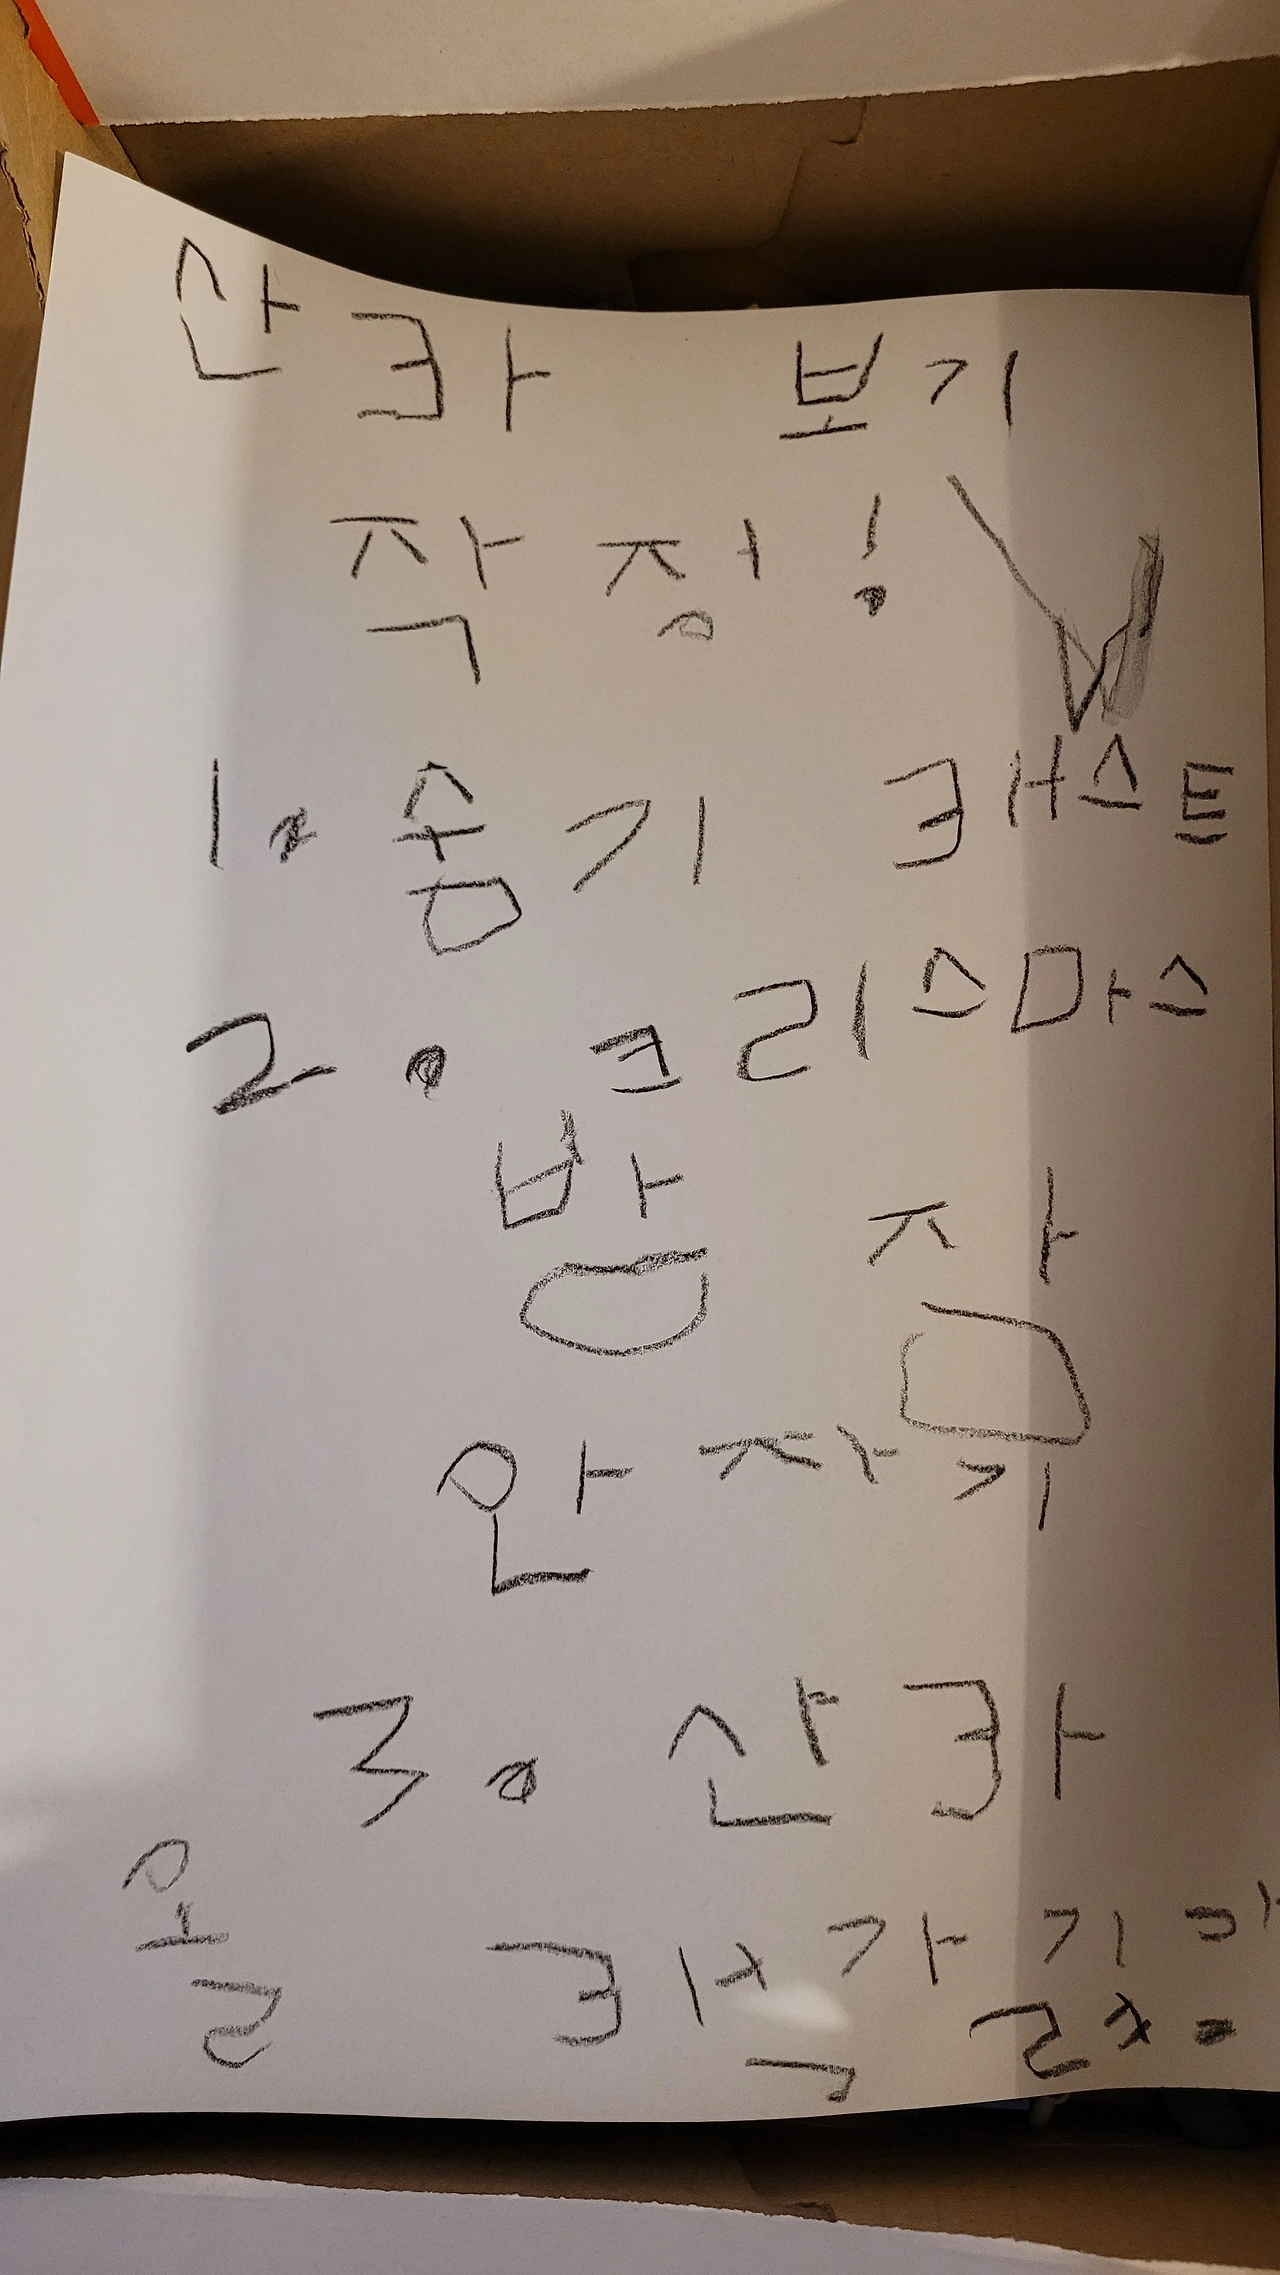 산카 보기
작정!
1. 숨기 캐스트
2. 크리스마스
밤 잠
안 자기
3. 산카
올